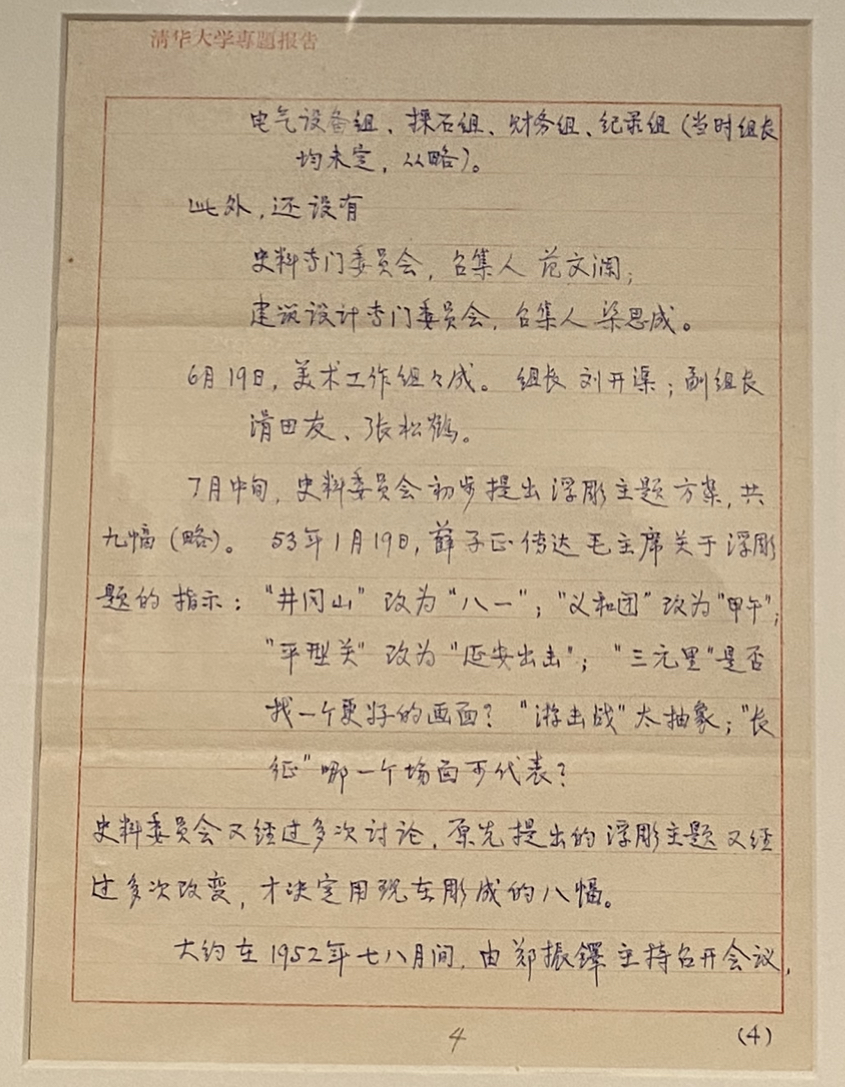 清华大学專題报告
电气设备组、採石组、财务组、纪录组(当时组长
均未定,从略)。
此外,还设有
史料专门委员会,召集人 范文澜;
建筑设计专门委员会,召集人 梁思成。
6月19日,美术工作组々成。 组长 刘开渠;副组长
滑田友、张松鹤。
7月中旬,史料委员会初步提出浮彫主题方案,共
九幅(略)。 53年1月19日,薛子正传达毛主席关于浮彫
题的指示:"井冈山"改为"八一";"义和团"改为"甲午";
"平型关"改为"延安出击";"三元里"是否
找一个更好的画面?"游击战"太抽象;"长
征"哪一个场面可代表?
史料委员会又经过多次讨论,原先提出的浮彫主题又经
过多次改变,才决定用现在彫成的八幅。
大约在1952年七八月间,由郑振铎主持召开会议,
4
(4)